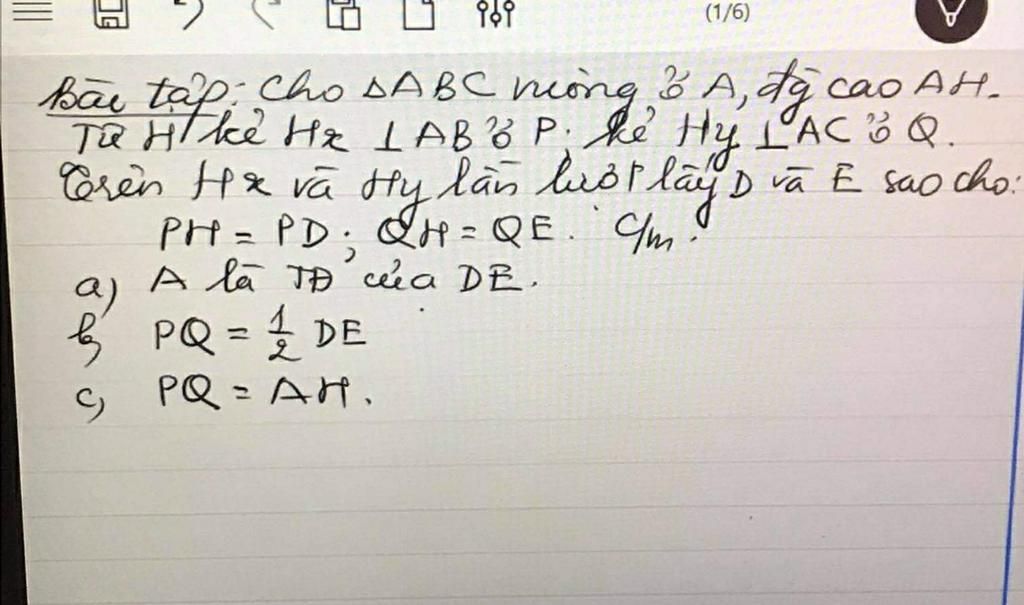 (1/6)
Bài tập: Cho △ABC vuông ở A, đg cao AH.
Từ H kẻ Hx ⊥ AB ở P; kẻ Hy ⊥ AC ở Q.
Trên Hx và Hy lần lượt lấy D và E sao cho:
PH = PD; QH = QE. C/m:
a) A là TĐ của DE.
b) PQ = 1/2 DE
c) PQ = AH.